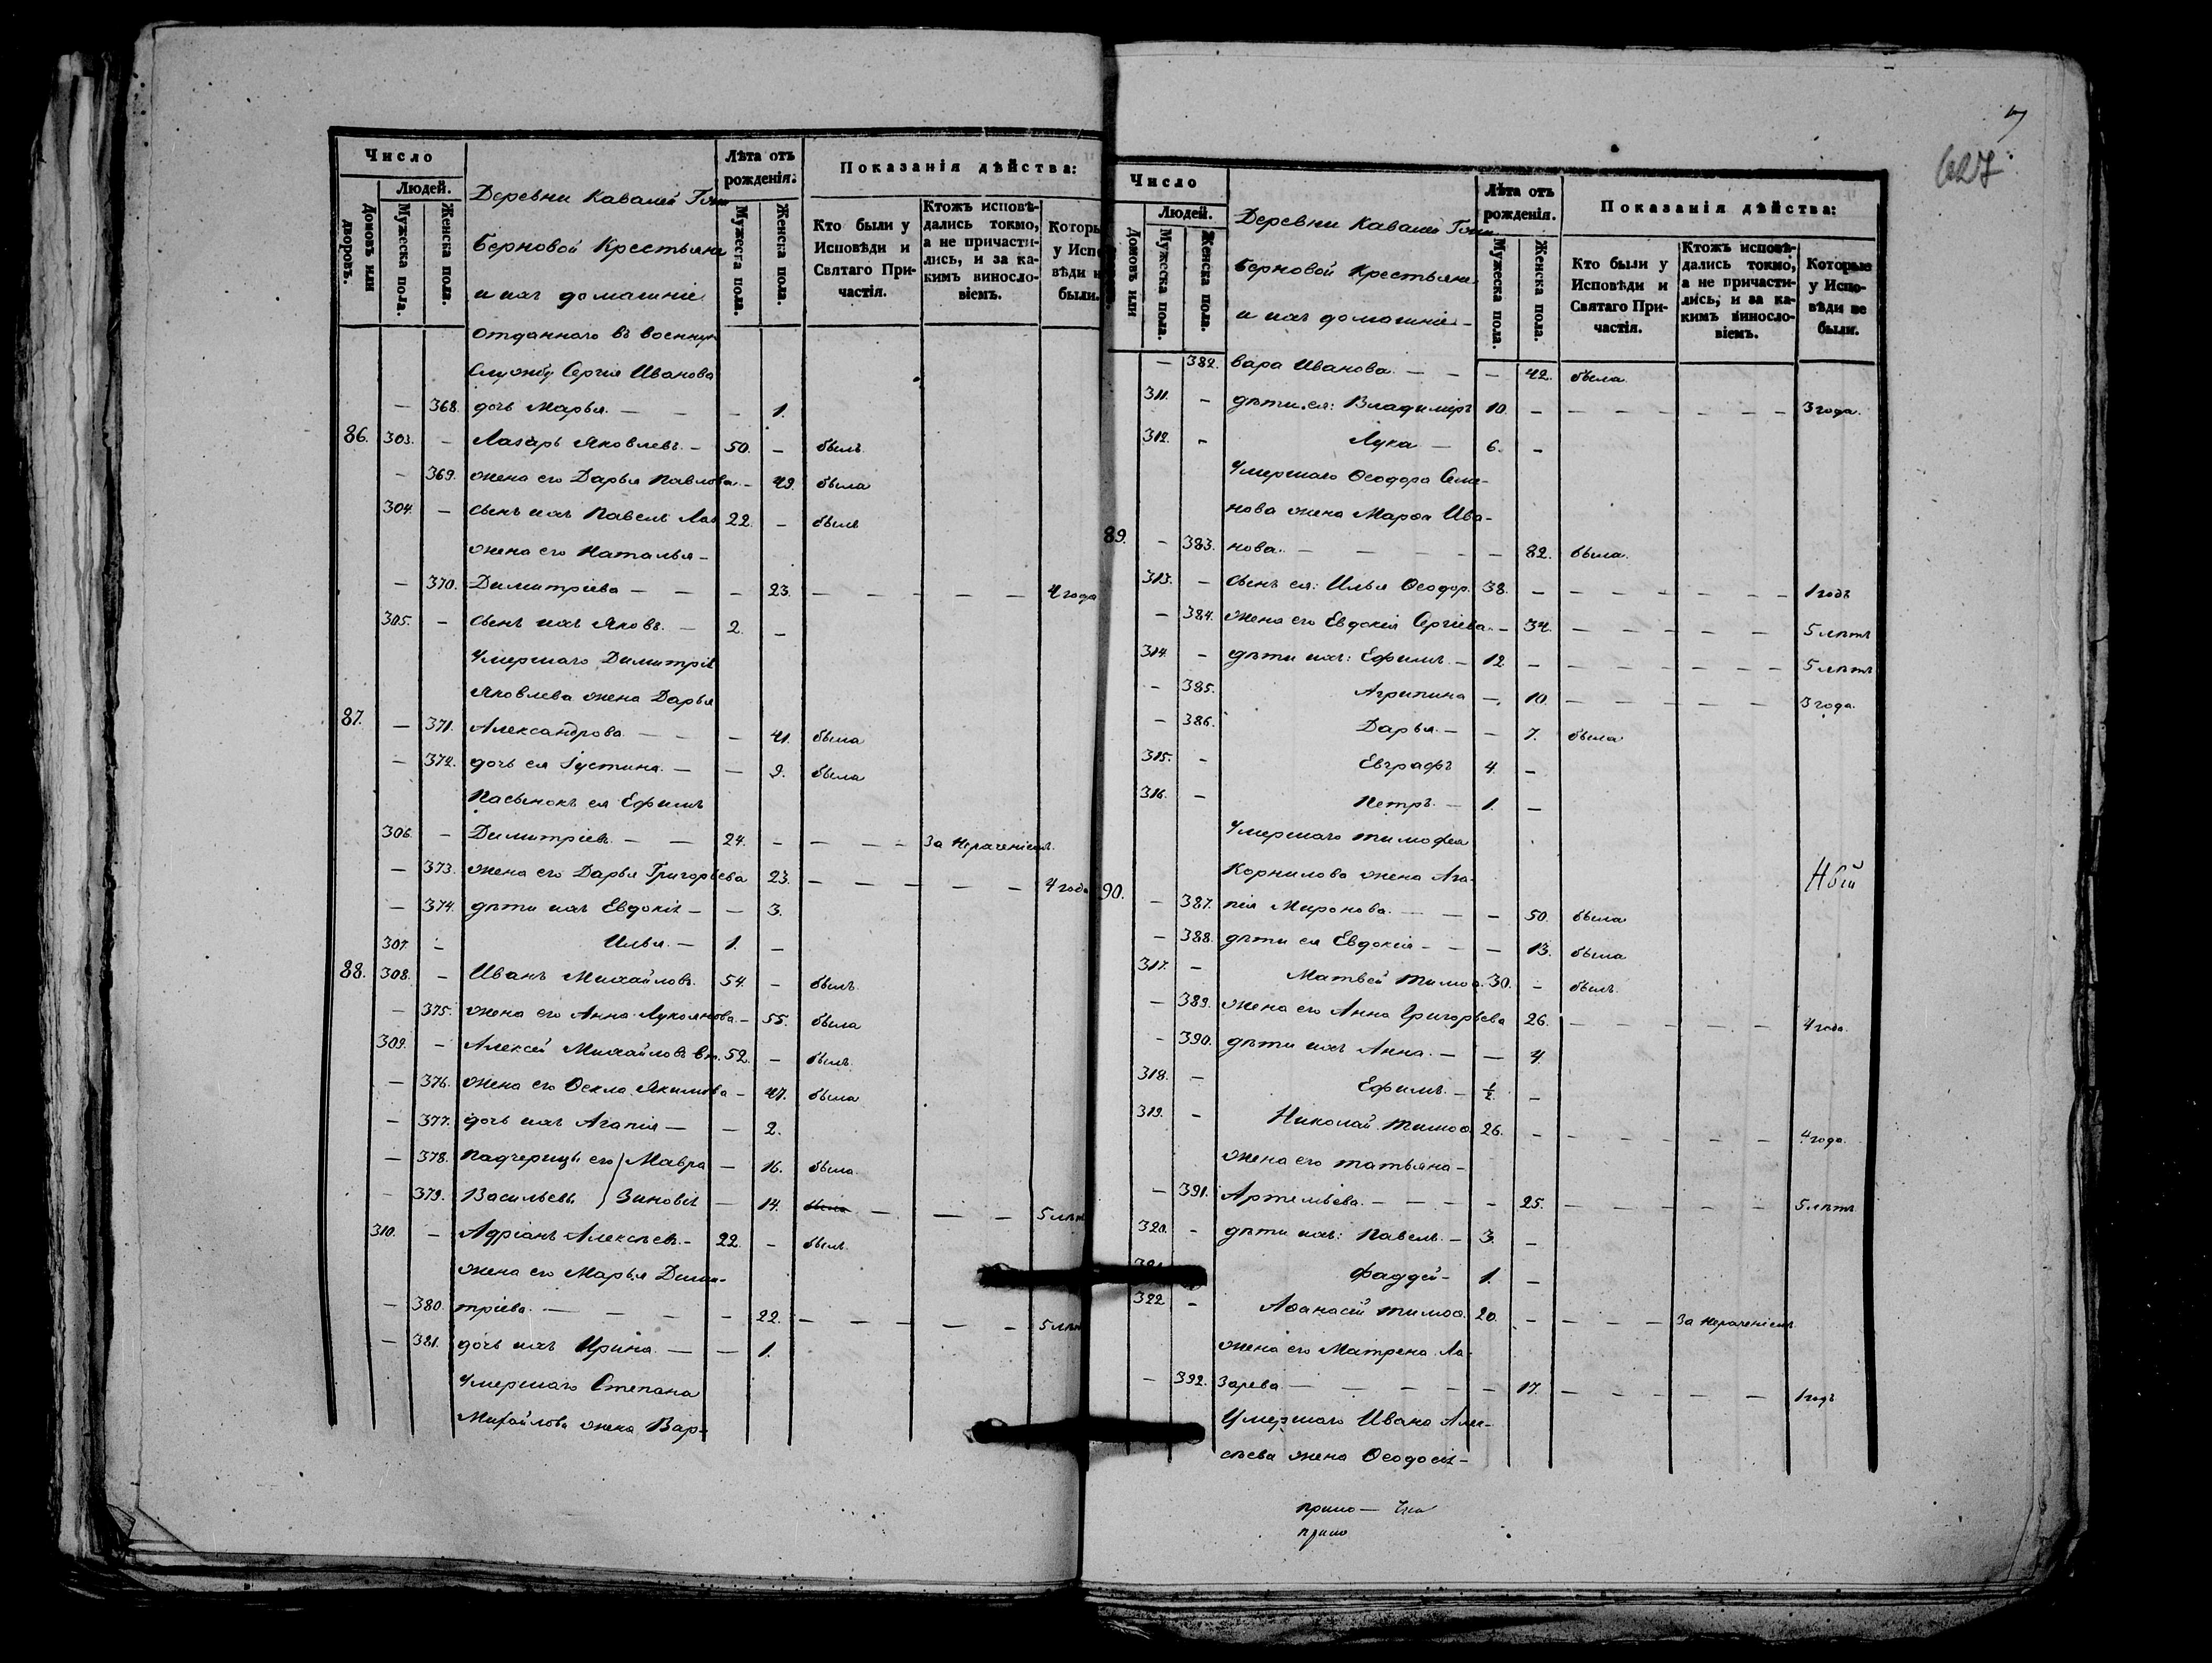 Число
Людей.
Домовъ или дворовъ.
Мужеска пола.
Женска пола.
Деревни Кавалей Гжи
Берновой Крестьяне
и ихъ домашніе
Лѣта отъ рожденія.
Мужеска пола.
Женска пола.
Показанія дѣйства:
Кто были у Исповѣди и Святаго Причастія.
Ктожъ исповѣдались токмо, а не причастились, и за какимъ винословіемъ.
Которы у Исп вѣди н были.
Отданнаго въ военную
службу Сергія Иванова
— 368. дочь Марья — — — 1.
86. 303. — Лазарь Яковлевъ — 50. — былъ
— 369. жена его Дарья Павлова — 49. была
304. — сынъ ихъ Павелъ Лаз 22. — былъ
жена его Наталья —
— 370. Димитріева — — — 23. — — — — — 4 года
305. — сынъ ихъ Яковъ — 2. —
Умершаго Димитрія
Яковлева жена Дарья
87. — 371. Александрова — — — 41. была
— 372. дочь ея Іустина — — 9. была
Пасынокъ ея Ефимъ
306. — Димитріевъ — — 24. — — — — За нераченіемъ
— 373. жена его Дарья Григорьева 23. — — — — — 4 года
— 374. дѣти ихъ Евдокія — — 3.
307. — Илья — 1. —
88. 308. — Иванъ Михайловъ 54. — былъ
— 375. жена его Анна Лукоянова — 55. была
309. — Алексѣй Михайловъ вт. 52. — былъ
— 376. жена его Ѳекла Якимова — 47. была
— 377. дочь ихъ Агапія — — 2.
— 378. падчерицы его Мавра — 16. была
— 379. Васильевы Зиновія — 14. была — — — 5 лѣтъ
310. — Адріанъ Алексѣевъ — 22. — былъ
жена его Марья Дими-
— 380. тріева — — — — 22. — — — — — 5 лѣтъ
— 381. дочь ихъ Ирина — — 1.
Умершаго Степана
Михайлова жена Вар-
7
627
Число
Людей.
Домовъ или
Мужеска пола.
Женска пола.
Деревни Кавалей Гжи
Берновой Крестьяне
и ихъ домашніе —
Лѣта отъ рожденія.
Мужеска пола.
Женска пола.
Показанія дѣйства:
Кто были у Исповѣди и Святаго Причастія.
Ктожъ исповѣдались токмо, а не причастились, и за какимъ винословіемъ.
Которые у Исповѣди не были.
— 382. вара Иванова — — — 42. была
311. — дѣти ея: Владиміръ 10. — — — — — — 3 года.
312. — Лука — 6. —
Умершаго Ѳеодора Семе-
нова жена Марѳа Ива-
89. — 383. нова — — — — — 82. была.
313. — сынъ ея: Илья Ѳеодор. 38. — — — — — — 1 годъ
— 384. жена его Евдокія Сергіева — 34. — — — — — 5 лѣтъ
314. — дѣти ихъ: Ефимъ — 12. — — — — — — 5 лѣтъ
— 385. Агрипина — 10. — — — — — 3 года.
— 386. Дарья — — 7. была
315. — Евграфъ 4. —
316. — Петръ — 1. —
Умершаго Тимофея
Корнилова жена Ага-
90. — 387. пія Миронова — — — 50. была
— 388. дѣти ея Евдокія — — — 13. была
317. — Матвей Тимоѳ. 30. — былъ.
— 389. жена его Анна Григорьева 26. — — — — — 4 года.
— 390. дѣти ихъ Анна — — 4.
318. — Ефимъ — ½. —
319. — Николай Тимоѳ. 26. — — — — — — 4 года.
жена его Татьяна —
— 391. Артемьева — — — — 25. — — — — — 5 лѣтъ
320. — дѣти ихъ: Павелъ — 3. —
Фаддей — 1. —
322 — Аѳанасій Тимоѳ. 20. — — — — За нераченіемъ
жена его Матрена Ла-
— 392. зарева — — — — — 17. — — — — — 1 годъ
Умершаго Ивана Алек-
сѣева жена Ѳеодосія —